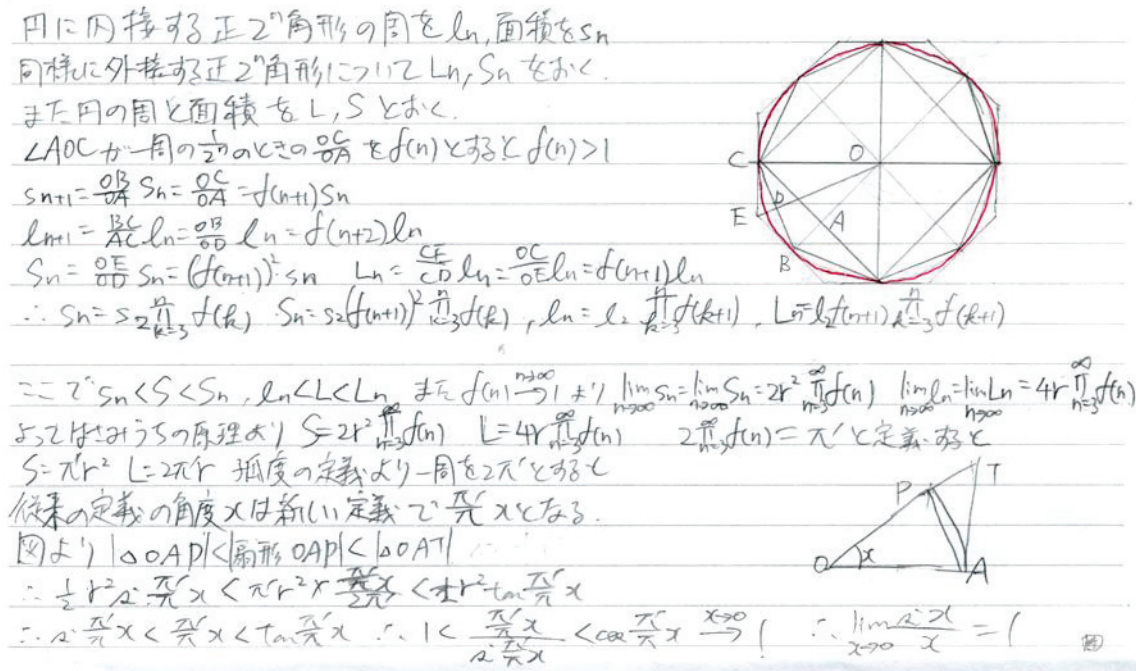 円に内接する正2^n角形の周をln,面積をsn
同様に外接する正2^n角形についてLn,Snをおく.
また円の周と面積をL,Sとおく.
∠AOCが一周の1/2^nのときのOC/OAをf(n)とするとf(n)>1
sn+1=OB/OA Sn=OC/OA=f(n+1)Sn
ln+1=BC/AC ln=OB/OD ln=f(n+2)ln
Sn=OE/OD Sn=(f(n+1))^2 sn Ln=CE/CD ln=OC/OE ln=f(n+1)ln
∴ Sn=s2 n∏k=3 f(k) Sn=s2(f(n+1))^2 n∏k=3 f(k), ln=l2 n∏k=3 f(k+1), Ln=l2f(n+1) n∏k=3 f(k+1)
C
O
D
E
A
B
ここでSn<S<Sn, ln<L<Ln またf(n) n→∞→1より lim n→∞ Sn=lim n→∞ Sn=2r^2 ∞∏n=3 f(n) lim n→∞ ln=lim n→∞ Ln=4r ∞∏n=3 f(n)
よってはさみうちの原理より S=2r^2 ∞∏n=3 f(n) L=4r ∞∏n=3 f(n) 2 ∞∏n=3 f(n)=π'と定義すると
S=π'r^2 L=2π'r 弧度の定義より一周を2π'とすると
従来の定義の角度xは新しい定義でπ'/π xとなる.
図より |△OAP|<|扇形OAP|<|△OAT|
∴ 1/2 r^2 sin π'/π x < π'r^2× π'/π x/2π' < 1/2 r^2 tan π'/π x
∴ sin π'/π x < π'/π x < tan π'/π x ∴ 1< π'/π x / sin π'/π x <cos π'/π x x→0→1 ∴ lim x→0 sin x/x =1
P
T
O
x
A